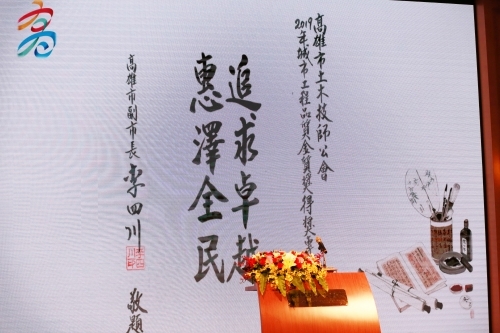 高雄市土木技師公會
2019年城市工程品質金質獎得獎
追求卓越
惠澤全民
高雄市副市長 李四川 敬題